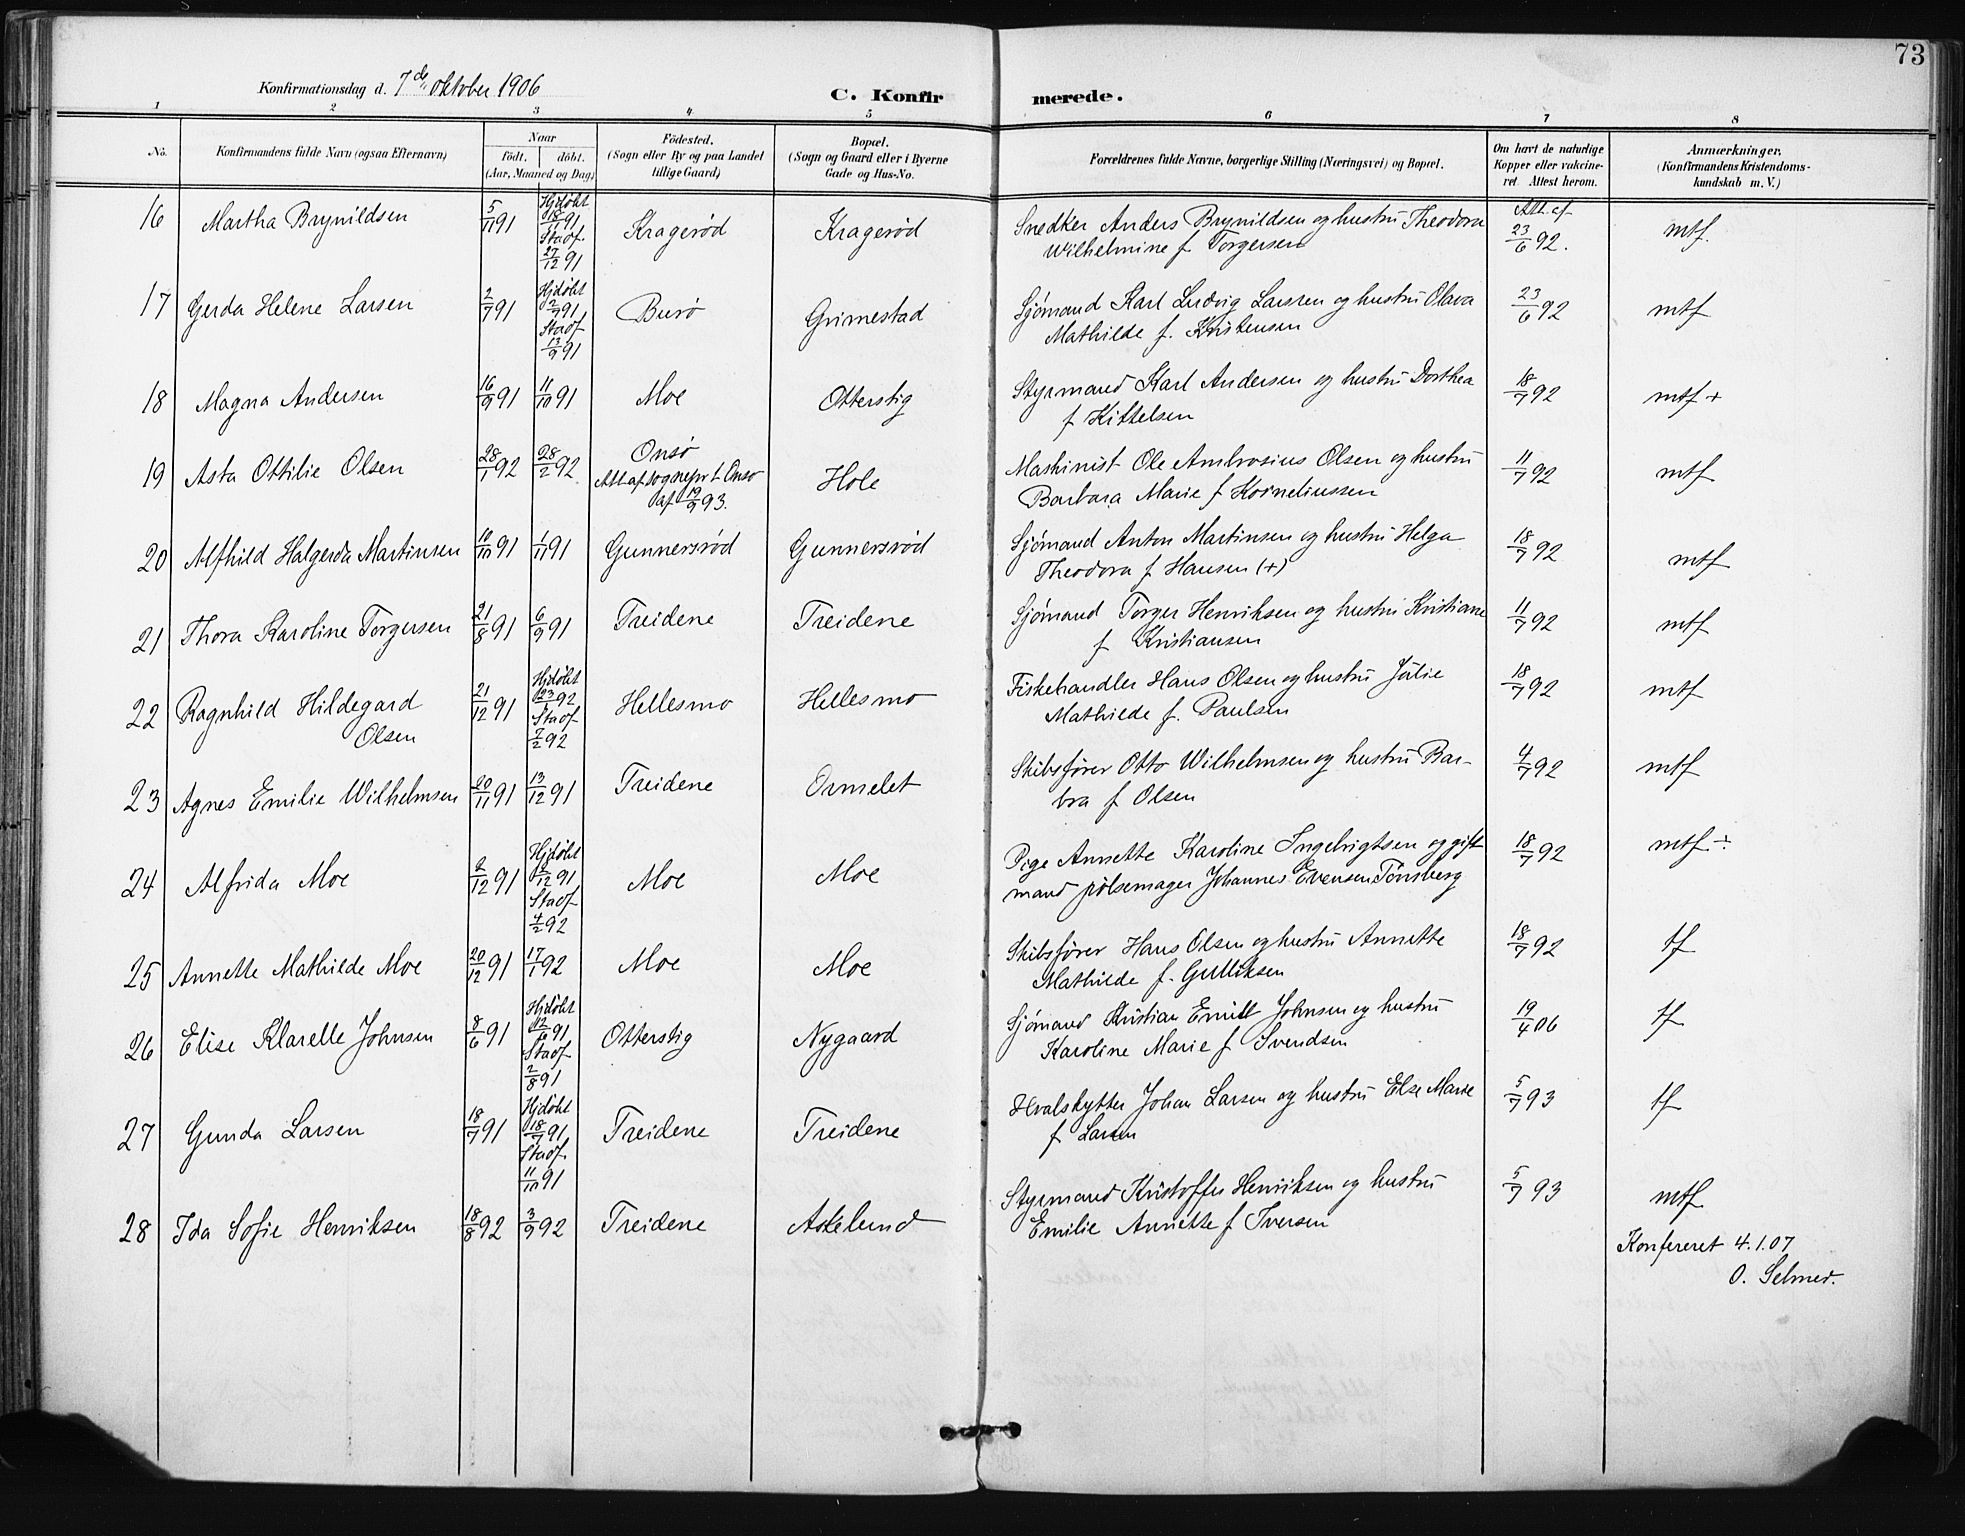 73
Konfirmationsdag d. 7de oktober 1906
C. Konfirmerede.
1 2 3 4 5 6 7 8
No.
Konfirmandens fulde Navn (ogsaa Efternavn)
Naar
födt. döbt.
(Aar, Maaned og Dag)
Födested.
(Sogn eller By og paa Landet
tillige Gaard)
Bopæl.
(Sogn og Gaard eller i Byerne
Gade og Hus-No.
Forældrenes fulde Navne, borgerlige Stilling (Næringsvei) og Bopæl.
Om havt de naturlige
Kopper eller vakcine-
ret. Attest herom.
Anmærkninger.
(Konfirmandens Kristendoms-
kundskab m. V.)
16 Martha Brynildsen 5/11 91 Hjdøbt 18/11 91 Stadf. 27/12 91 Kragerød Kragerød Snedker Anders Brynildsen og hustru Theodora Att. af 23/6 92. mtf.
Wilhelmine f Torgersen
17 Gerda Helene Larsen 2/7 91 Hjdøbt 2/7 91 Stadf 13/9 91 Burø Grimestad Sjømand Karl Ludvig Larsen og hustru Olava 23/6 92 mtf
Mathilde f. Kristensen
18 Magna Andersen 16/9 91 11/10 91 Moe Otterstig Styrmand Karl Andersen og hustru Dorthea 18/7 92 mtf +
f Kittelsen
19 Asta Ottilie Olsen 28/1 92 28/2 92 Onsø Hole Maskinist Ole Ambrosius Olsen og hustru 11/7 92 mtf
Att af sognepr t. Onsø
af 19/9 93.
Barbara Marie f Korneliussen
20 Alfhild Halgerda Martinsen 10/10 91 1/11 91 Gunnersrød Gunnersrød Sjømand Anton Martinsen og hustru Helga 18/7 92 mtf
Theodora f Hansen (+)
21 Thora Karoline Torgersen 21/8 91 6/9 91 Treidene Treidene Sjømand Torger Henriksen og hustru Kristiane 11/7 92 mtf
f Kristiansen
22 Ragnhild Hildegard 21/12 91 Hjdøbt 23/ 92 Stadf 7/2 92 Hellesmo Hellesmo Fiskehandler Hans Olsen og hustru Julie 18/7 92 mtf
Olsen
Mathilde f. Paulsen
23 Agnes Emilie Wilhelmsen 20/11 91 13/12 91 Treidene Ormelet Skibsfører Otto Wilhelmsen og hustru Bar- 4/7 92 mtf
bra f Olsen
24 Alfrida Moe 2/12 91 Hjdøbt 2/12 91 Stadf 4/2 92 Moe Moe Pige Annette Karoline Ingebrigtsen og gift 18/7 92 mtf ÷
mand pølsemager Johannes Evensen Tønsberg
25 Annette Mathilde Moe 20/12 91 17/1 92 Moe Moe Skibsfører Hans Olsen og hustru Annette 18/7 92 tf
Mathilde f. Gulliksen
26 Elise Klarelle Johnsen 8/6 91 Hjdøbt 12/6 91 Stadf. 2/8 91 Otterstig Nygaard Sjømand Kristian Emil Johnsen og hustru 19/4 06 tf
Karoline Marie f Svendsen
27 Gunda Larsen 18/7 91 Hjdøbt 18/7 91 Stadf. 11/10 91 Treidene Treidene Hvalskytter Johan Larsen og hustru Else Marie 5/7 93 tf
f Larsen
28 Ida Sofie Henriksen 18/8 92 3/9 92 Treidene Askelund Styrmand Kristoffer Henriksen og hustru 5/7 93 mtf
Emilie Annette f Iversen
Konfereret 4.1.07
O. Selmer.